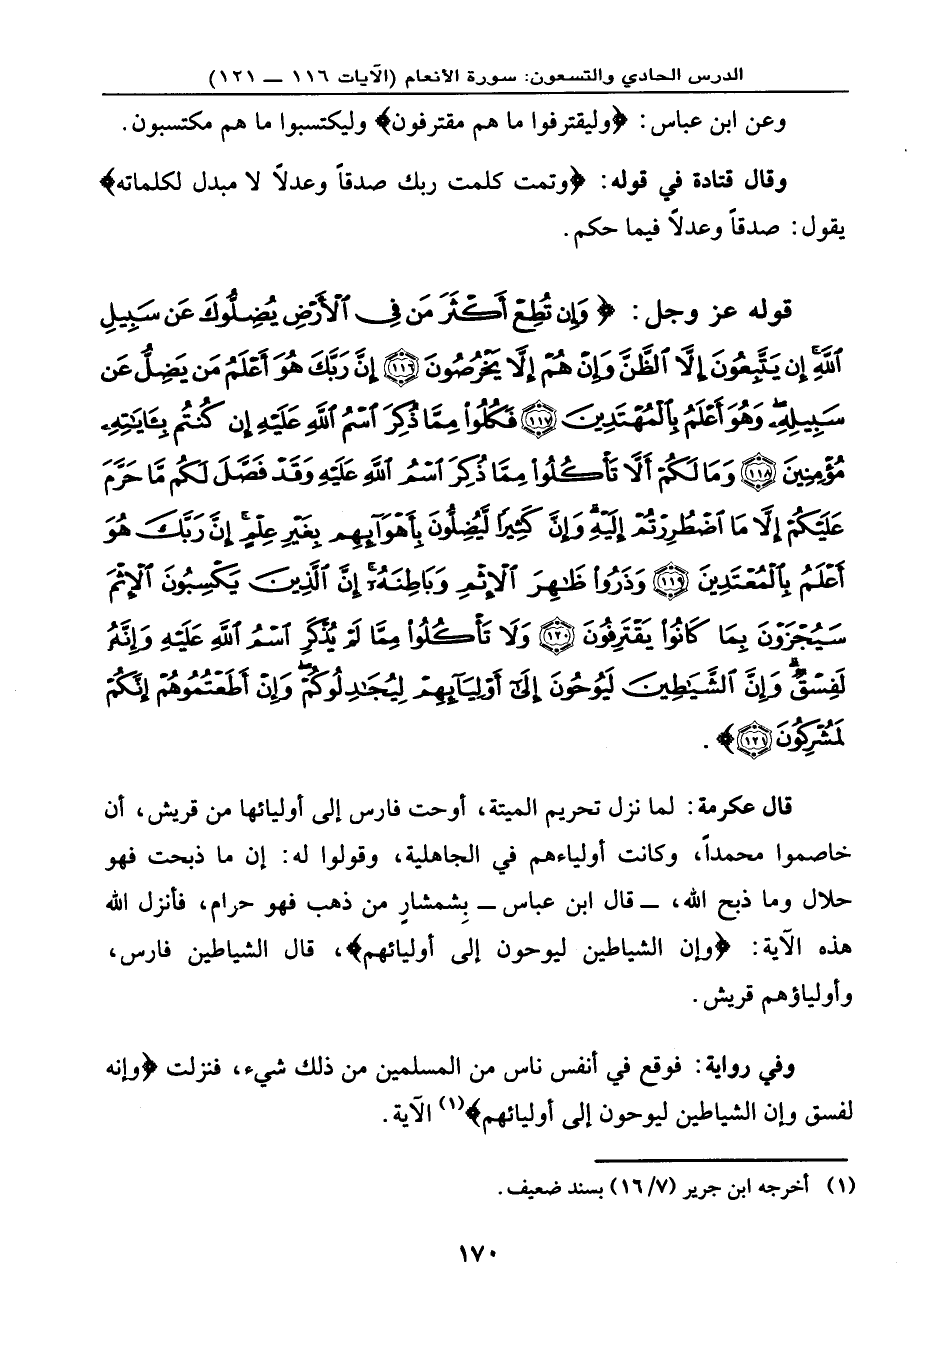 الدرس الحادي والتسعون: سورة الأنعام (الآيات ١١٦ ــ ١٢١)
وعن ابن عباس: ﴿وليقترفوا ما هم مقترفون﴾ وليكتسبوا ما هم مكتسبون.
وقال قتادة في قوله: ﴿وتمت كلمت ربك صدقاً وعدلاً لا مبدل لكلماته﴾
يقول: صدقاً وعدلاً فيما حكم.
قوله عز وجل: ﴿ وَإِن تُطِعْ أَكْثَرَ مَن فِى ٱلْأَرْضِ يُضِلُّوكَ عَن سَبِيلِ
ٱللَّهِ ۚ إِن يَتَّبِعُونَ إِلَّا ٱلظَّنَّ وَإِنْ هُمْ إِلَّا يَخْرُصُونَ ﴿١١٦﴾ إِنَّ رَبَّكَ هُوَ أَعْلَمُ مَن يَضِلُّ عَن
سَبِيلِهِۦ ۖ وَهُوَ أَعْلَمُ بِٱلْمُهْتَدِينَ ﴿١١٧﴾ فَكُلُوا۟ مِمَّا ذُكِرَ ٱسْمُ ٱللَّهِ عَلَيْهِ إِن كُنتُم بِـَٔايَـٰتِهِۦ
مُؤْمِنِينَ ﴿١١٨﴾ وَمَا لَكُمْ أَلَّا تَأْكُلُوا۟ مِمَّا ذُكِرَ ٱسْمُ ٱللَّهِ عَلَيْهِ وَقَدْ فَصَّلَ لَكُم مَّا حَرَّمَ
عَلَيْكُمْ إِلَّا مَا ٱضْطُرِرْتُمْ إِلَيْهِ ۗ وَإِنَّ كَثِيرًا لَّيُضِلُّونَ بِأَهْوَآئِهِم بِغَيْرِ عِلْمٍ ۗ إِنَّ رَبَّكَ هُوَ
أَعْلَمُ بِٱلْمُعْتَدِينَ ﴿١١٩﴾ وَذَرُوا۟ ظَـٰهِرَ ٱلْإِثْمِ وَبَاطِنَهُۥٓ ۚ إِنَّ ٱلَّذِينَ يَكْسِبُونَ ٱلْإِثْمَ
سَيُجْزَوْنَ بِمَا كَانُوا۟ يَقْتَرِفُونَ ﴿١٢٠﴾ وَلَا تَأْكُلُوا۟ مِمَّا لَمْ يُذْكَرِ ٱسْمُ ٱللَّهِ عَلَيْهِ وَإِنَّهُۥ
لَفِسْقٌ ۗ وَإِنَّ ٱلشَّيَـٰطِينَ لَيُوحُونَ إِلَىٰٓ أَوْلِيَآئِهِمْ لِيُجَـٰدِلُوكُمْ ۖ وَإِنْ أَطَعْتُمُوهُمْ إِنَّكُمْ
لَمُشْرِكُونَ ﴿١٢١﴾﴾.
قال عكرمة: لما نزل تحريم الميتة، أوحت فارس إلى أوليائها من قريش، أن
خاصموا محمداً، وكانت أولياءهم في الجاهلية، وقولوا له: إن ما ذبحت فهو
حلال وما ذبح الله، ــ قال ابن عباس ــ بِشمشارٍ من ذهب فهو حرام، فأنزل الله
هذه الآية: ﴿وإن الشياطين ليوحون إلى أوليائهم﴾، قال الشياطين فارس،
وأولياؤهم قريش.
وفي رواية: فوقع في أنفس ناس من المسلمين من ذلك شيء، فنزلت ﴿وإنه
لفسق وإن الشياطين ليوحون إلى أوليائهم﴾(١) الآية.
(١) أخرجه ابن جرير (١٦/٧) بسند ضعيف.
١٧٠